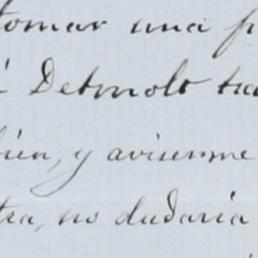 tomar una
Detmolt
bien, y avisenme
no dudaria